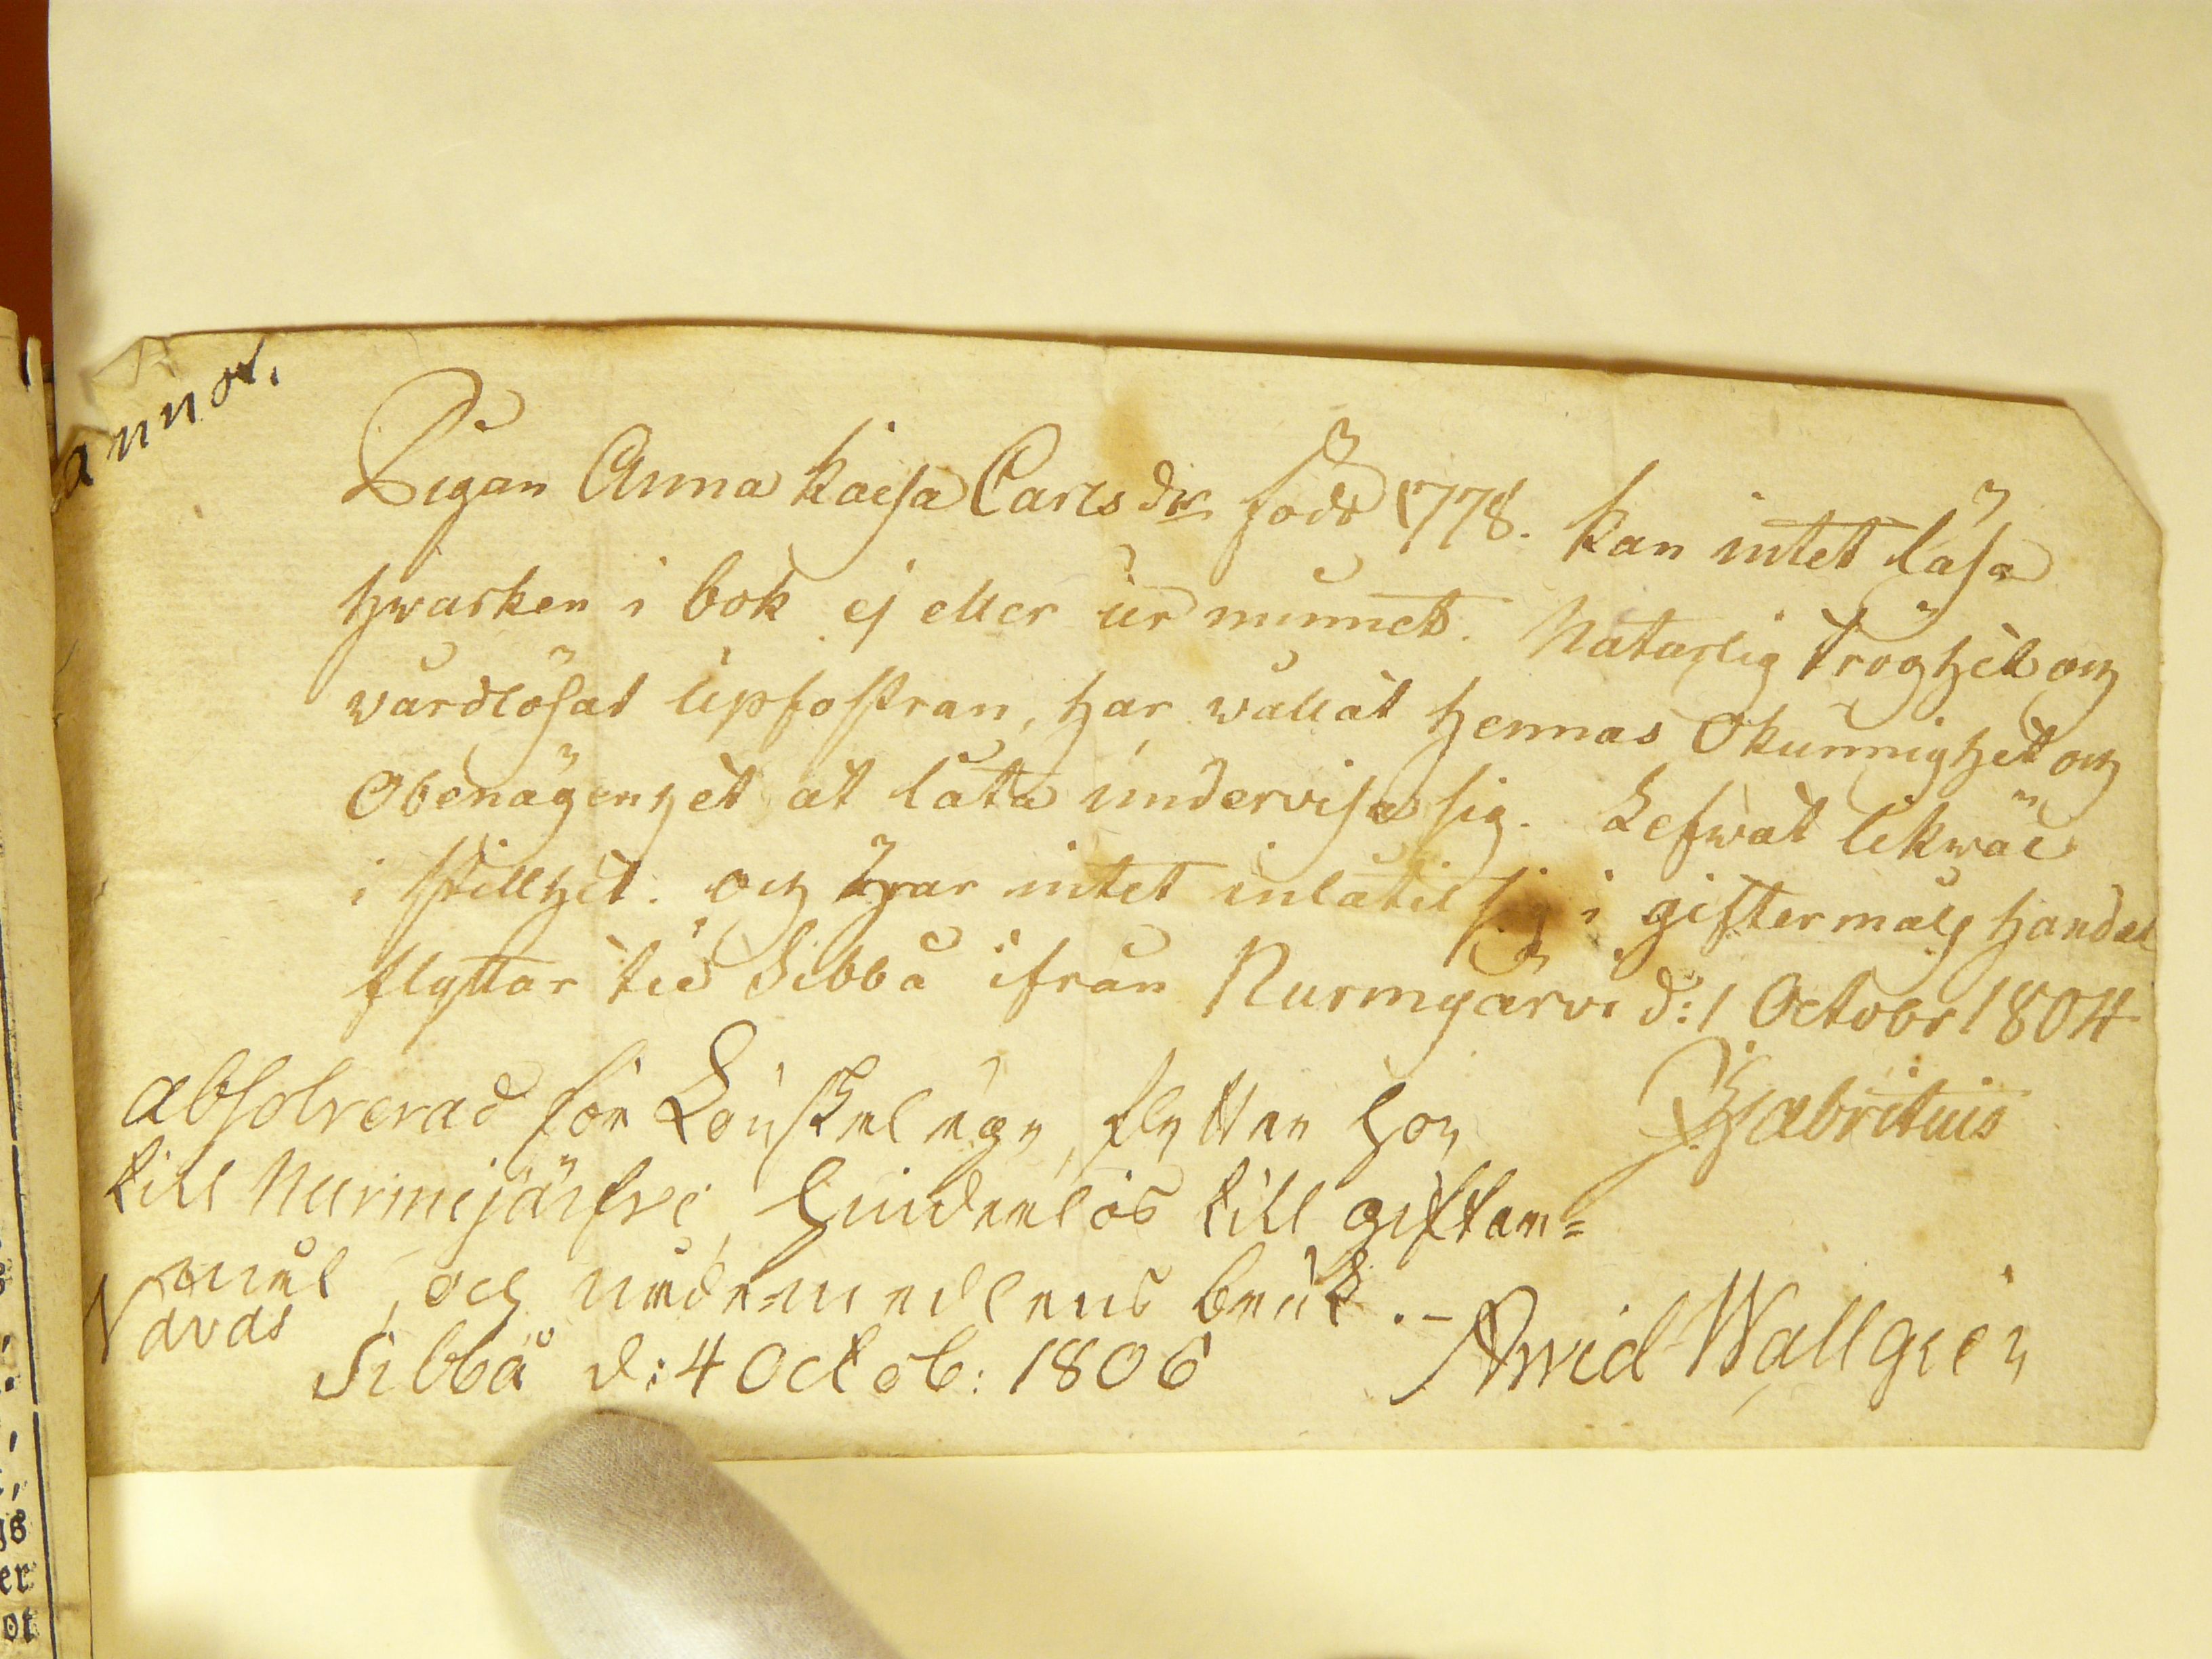 annot.
Pigan Anna Kaisa Carlsdr född 1778. kan intet läsa
hwarken i bok ej eller ur minnet. Naturlig Tröghet och
vårdlösat Upfostran, har wållat hennas Okunnighet och
Obenägenhet at låta undervisa sig. Lefwat likwäl
i stillhet. och har intet inlåtit sig i giftermåls handel
flyttar til Sibbå ifrån Nurmijärvi d: 1 Octobr 1804
Absolverad för Lönskeläge, flyttar hon
till Nurmijärfvi, hinderlös till gifter=
mål, och nådemedlens bruk. -
Sibbå d: 4 Octob: 1806 Arvid Wallgrén